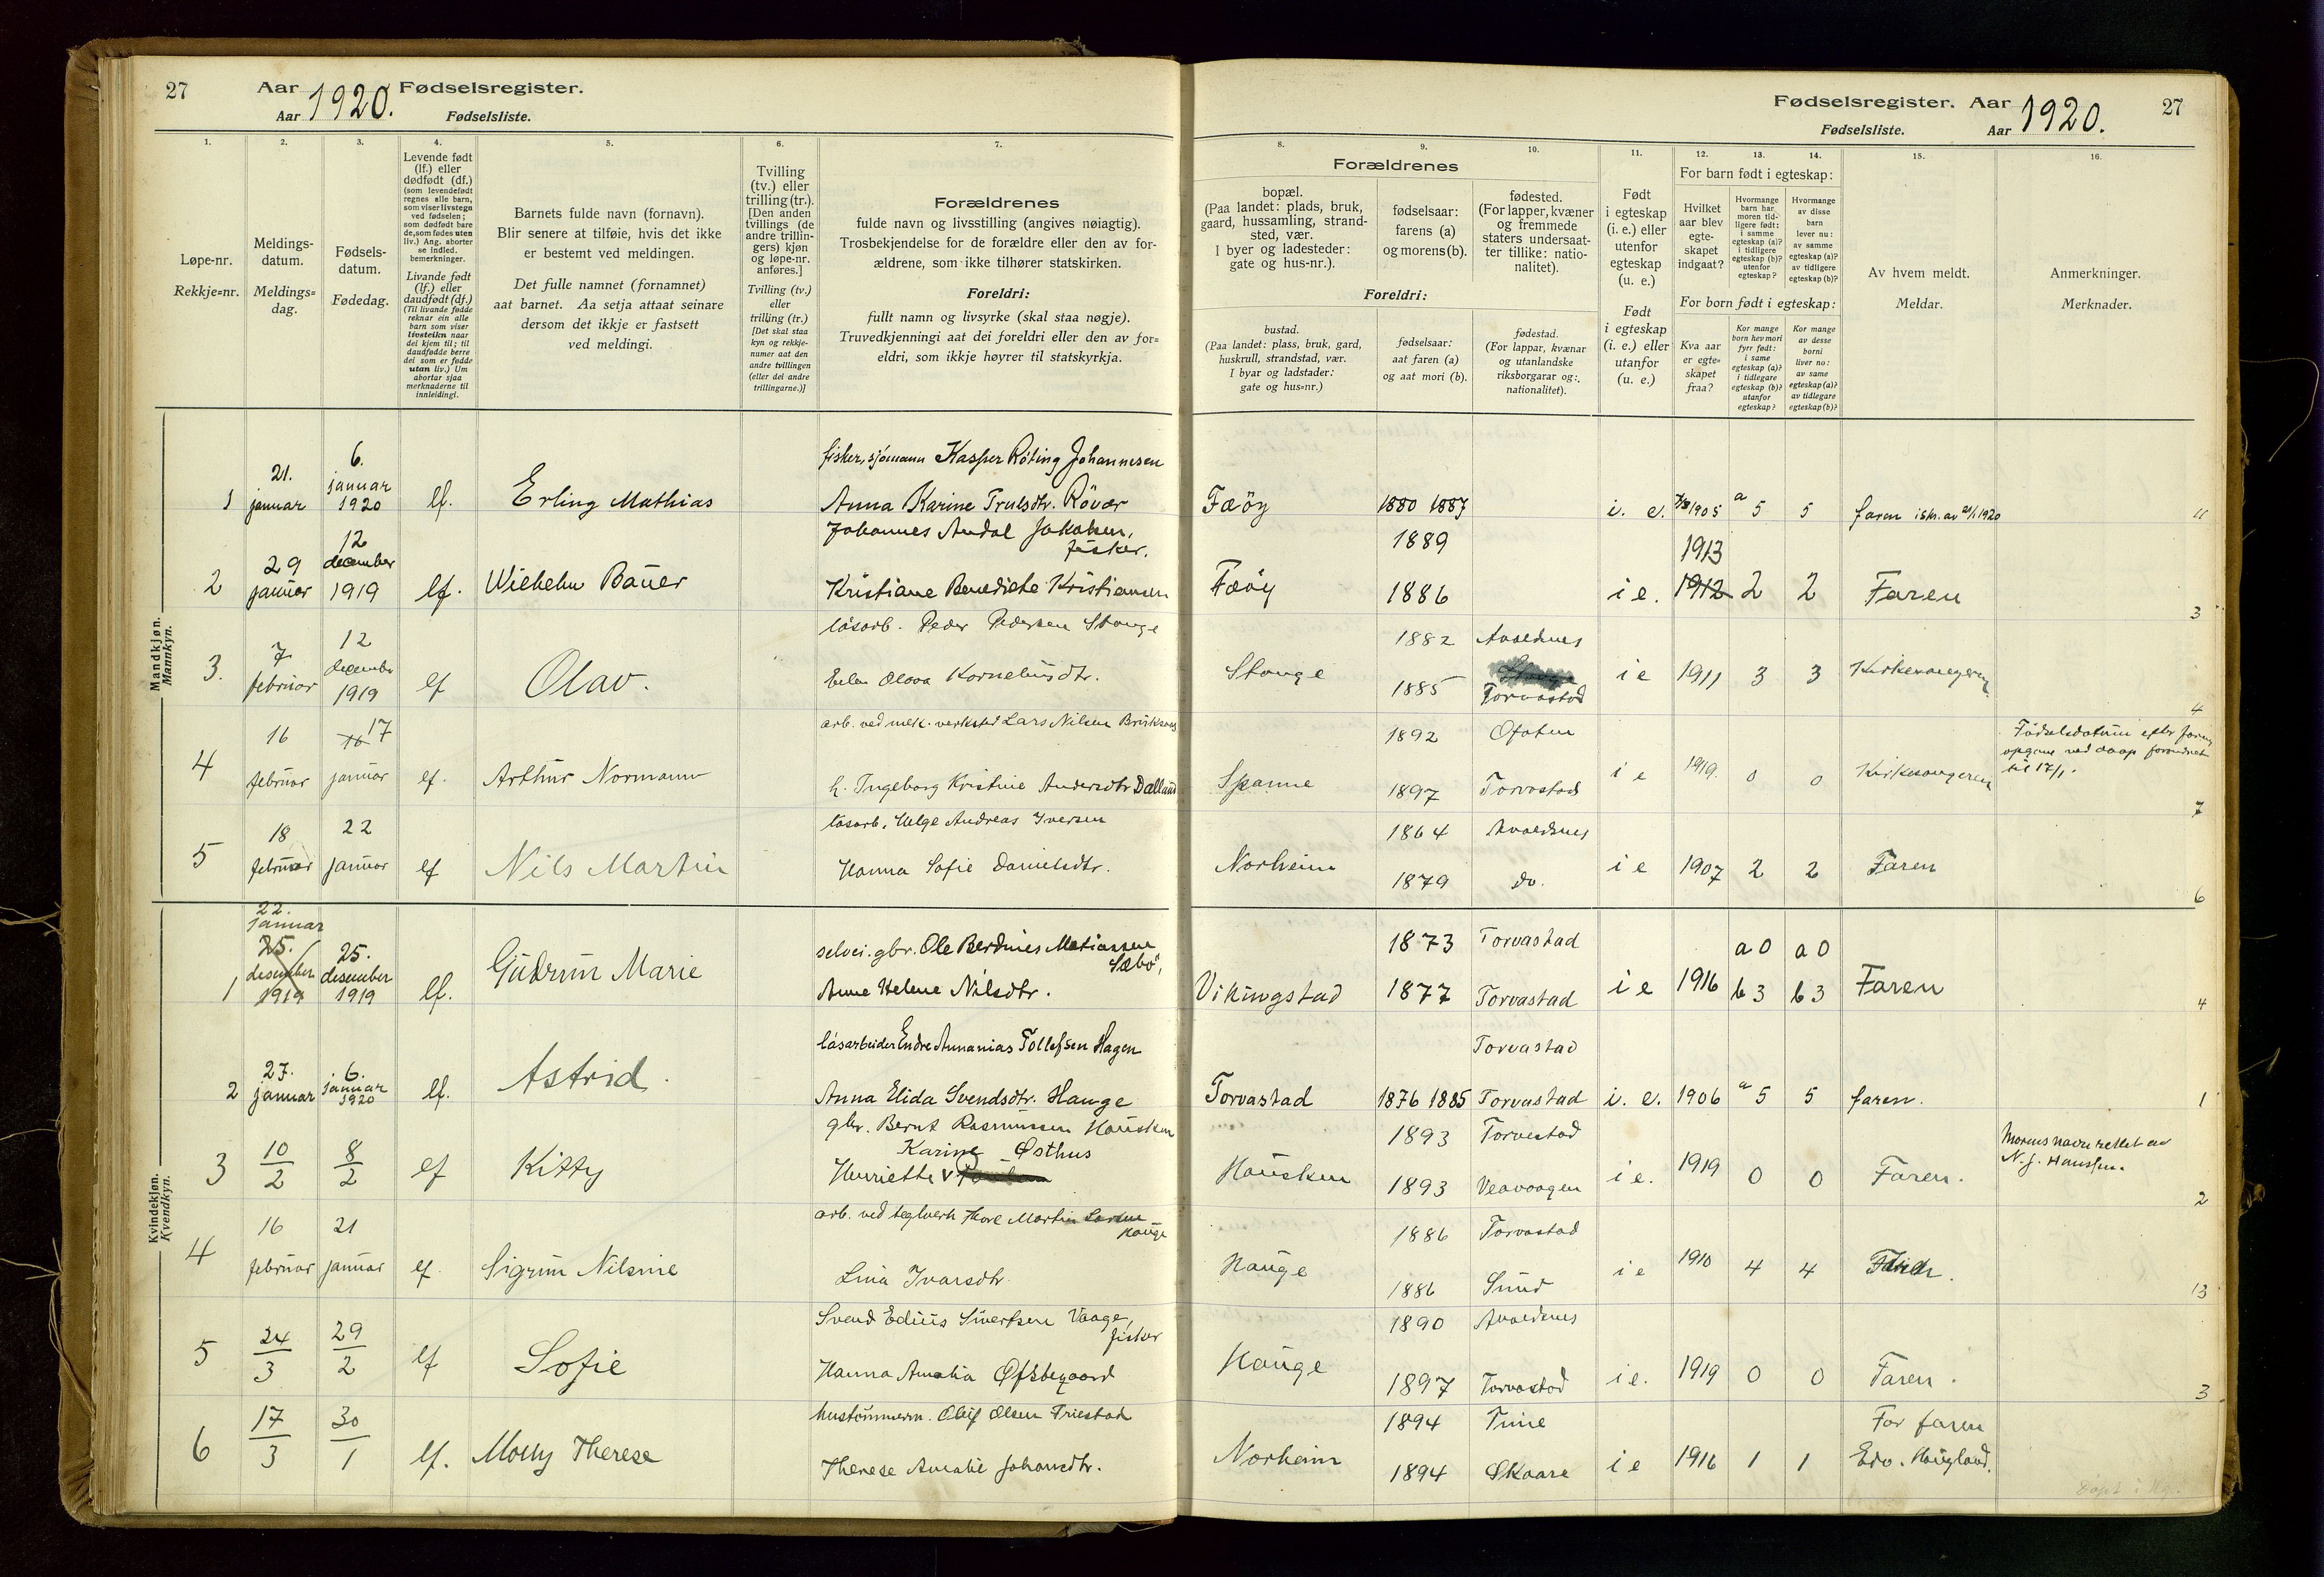 27 Aar 1920. Fødselsregister.
Aar Fødselsliste.
Fødselsregister. Aar 1920. 27
Fødselsliste. Aar
1. 2. 3. 4. 5. 6. 7.
Løpe-nr.
Rekkje=nr.
Meldings-
datum.
Meldings=
dag.
Fødsels-
datum.
Fødedag.
Levende født
(lf.) eller
dødfødt (df.)
(som levendefødt
regnes alle barn,
som viser livstegn
ved fødselen;
som dødfødt bare
de, som fødes uten
liv.) Ang. aborter
se indled.
bemerkninger.
Livande født
(lf.) eller
daudfødt (df.)
(Til livande fødde
reknar ein alle
barn som viser
livsteikn naar
dei kjem til; til
daudfødde berre
dei som er fødde
utan liv.) Um
abortar sjaa
merknaderne til
innleidingi.
Barnets fulde navn (fornavn).
Blir senere at tilføie, hvis det ikke
er bestemt ved meldingen.
Det fulle namnet (fornamnet)
aat barnet. Aa setja attaat seinare
dersom det ikkje er fastsett
ved meldingi.
Tvilling
(tv.) eller
trilling (tr.).
[Den anden
tvillings (de
andre trillin-
gers) kjøn
og løpe-nr.
anføres.]
Tvilling (tv.)
eller
trilling (tr.)
[Det skal staa
kyn og rekkje-
numer aat den
andre tvillingen
(eller dei andre
trillingarne.)]
Forældrenes
fulde navn og livsstilling (angives nøiagtig).
Trosbekjendelse for de forældre eller den av for-
ældrene, som ikke tilhører statskirken.
Foreldri:
fullt namn og livsyrke (skal staa nøgje).
Truvedkjenningi aat dei foreldri eller den av for-
eldri, som ikkje høyrer til statskyrkja.
8. 9. 10. 11. 12. 13. 14. 15. 16.
Forældrenes
bopæl.
(Paa landet: plads, bruk,
gaard, hussamling, strand-
sted, vær.
I byer og ladesteder:
gate og hus-nr.).
fødselsaar:
farens (a)
og morens (b).
fødested.
(For lapper, kvæner
og fremmede
staters undersaat-
ter tillike: natio-
nalitet).
Foreldri:
bustad.
(Paa landet: plass, bruk, gard,
huskrull, strandstad, vær.
I byar og ladstader:
gate og hus=nr.)
fødselsaar:
aat faren (a)
og aat mori (b).
fødestad.
(For lappar, kvænar
og utanlandske
riksborgarar og:
nationalitet).
Født
i egteskap
(i. e.) eller
utenfor
egteskap
(u. e.)
Født
i egteskap
(i. e.) eller
utanfor
egteskap
(u. e.)
For barn født i egteskap:
Hvilket
aar blev
egte-
skapet
indgaat?
Hvormange
barn har
moren tid-
ligere født:
i samme
egteskap (a)?
i tidligere
egteskap (b)?
utenfor
egteskap?
Hvormange
av disse
barn
lever nu:
av samme
egteskap (a)?
av tidligere
egteskap (b)?
For born født i egteskap:
Kva aar
er egte=
skapet
fraa?
Kor mange
born hev mori
fyrr født:
i same
egteskap (a)?
i tidlegare
egteskap (b)?
utanfor
egteskap?
Kor mange
av desse
borni
liver no:
av same
egteskap (a)?
av tidlegare
egteskap (b)?
Av hvem meldt.
Meldar.
Anmerkninger.
Merknader.
Mandkjøn.
Mannkyn.
1 21. januar 6. januar 1920 lf. Erling Mathias
fisker, sjömann Kasper Röting Johannesen
Anna Karine Trulsdtr. Rövær
Feöy 1880 1887 i. e. 1905 a 5 5 faren
11
2 29 januar 12 december 1919 lf. Wilhelm Bauer
Johannes Andal Jakobsen,
fisker.
Kristiane Benedicte Kristiansen
Feöy 1889 1886 i e. 1913 1912 2 2 Faren
3
3. 7 februar 12 december 1919 lf Olav.
lösarb. Peder Pedersen Stange
Kornelisdtr.
Stange 1882 Avaldnes 1885 Torvastad i e 1911 3 3 Kirkesangeren
4
4 16 februar 16 17 januar lf. Arthur Normann
arb. ved mek. verksted Lars Nilsen
h. Ingeborg Kristine Andersdtr Dalland
Spanne 1892 Ofoten 1897 Torvastad i e 1919. 0 0 Kirkesangeren
Födselsdatum efter farens
opgave ved daap forandret
til 17/1.
7
5 18 februar 22 januar lf Nils Martin
lösarb. Helge Andreas Iversen
Hanna Sofie Danielsdtr.
Norheim 1864 Avaldnes 1879 do. i e 1907 2 2 Faren
6
Kvindekjøn.
Kvendkyn.
1 22. januar 25. desember 1919 25. desember 1919 lf. Gudrun Marie
selvei. gbr. Ole Berdines Matiassen
Sæbö,
Anne Helene Nilsdtr.
Vikingstad 1873 Torvastad 1877 Torvastad i e 1916 a 0 b 3 a 0 b 3 Faren
4
2 27. januar 6. januar 1920 lf. Astrid.
lösarbeider Endre Ananias Tollefsen Hagen
Anna Elida Svendsdtr. Hauge
Torvastad 1876 1885 Torvastad Torvastad i. e. 1906 a 5 5 faren.
1
3 10/2 8/2 lf Kitty
gbr. Bernt Rasmussen Hausken
Karine Østhus
Henriette v
Hausken 1893 Torvestad 1893 Veavaagen i e. 1919 0 0 Faren.
Morens navn rettet av
N. J. Hanssen.
2
4 16 februar 21 januar lf Sigrun Nilsine
arb. ved teglverk Tore Martin Larsen
Hauge
Lina Ivarsdtr.
Hauge 1886 Torvastad 1886 Sund i e 1910 4 4
13
5 24/3 29/2 lf Sofie
Svend Edius Sivertsen Vaage,
fisker
Hanna Amalia
Hauge 1890 Avaldnes 1897 Torvastad i e. 1919 0 0 Faren.
3
6 17/3 30/1 lf. Molly Therese
hustömmerm. Oluf Olsen Friestad
Therese Amalie Johansdtr.
Norheim 1894 Time 1894 Skaare i e 1916 1 1 For faren
Edv. Haugland.
Döpt i Hg.